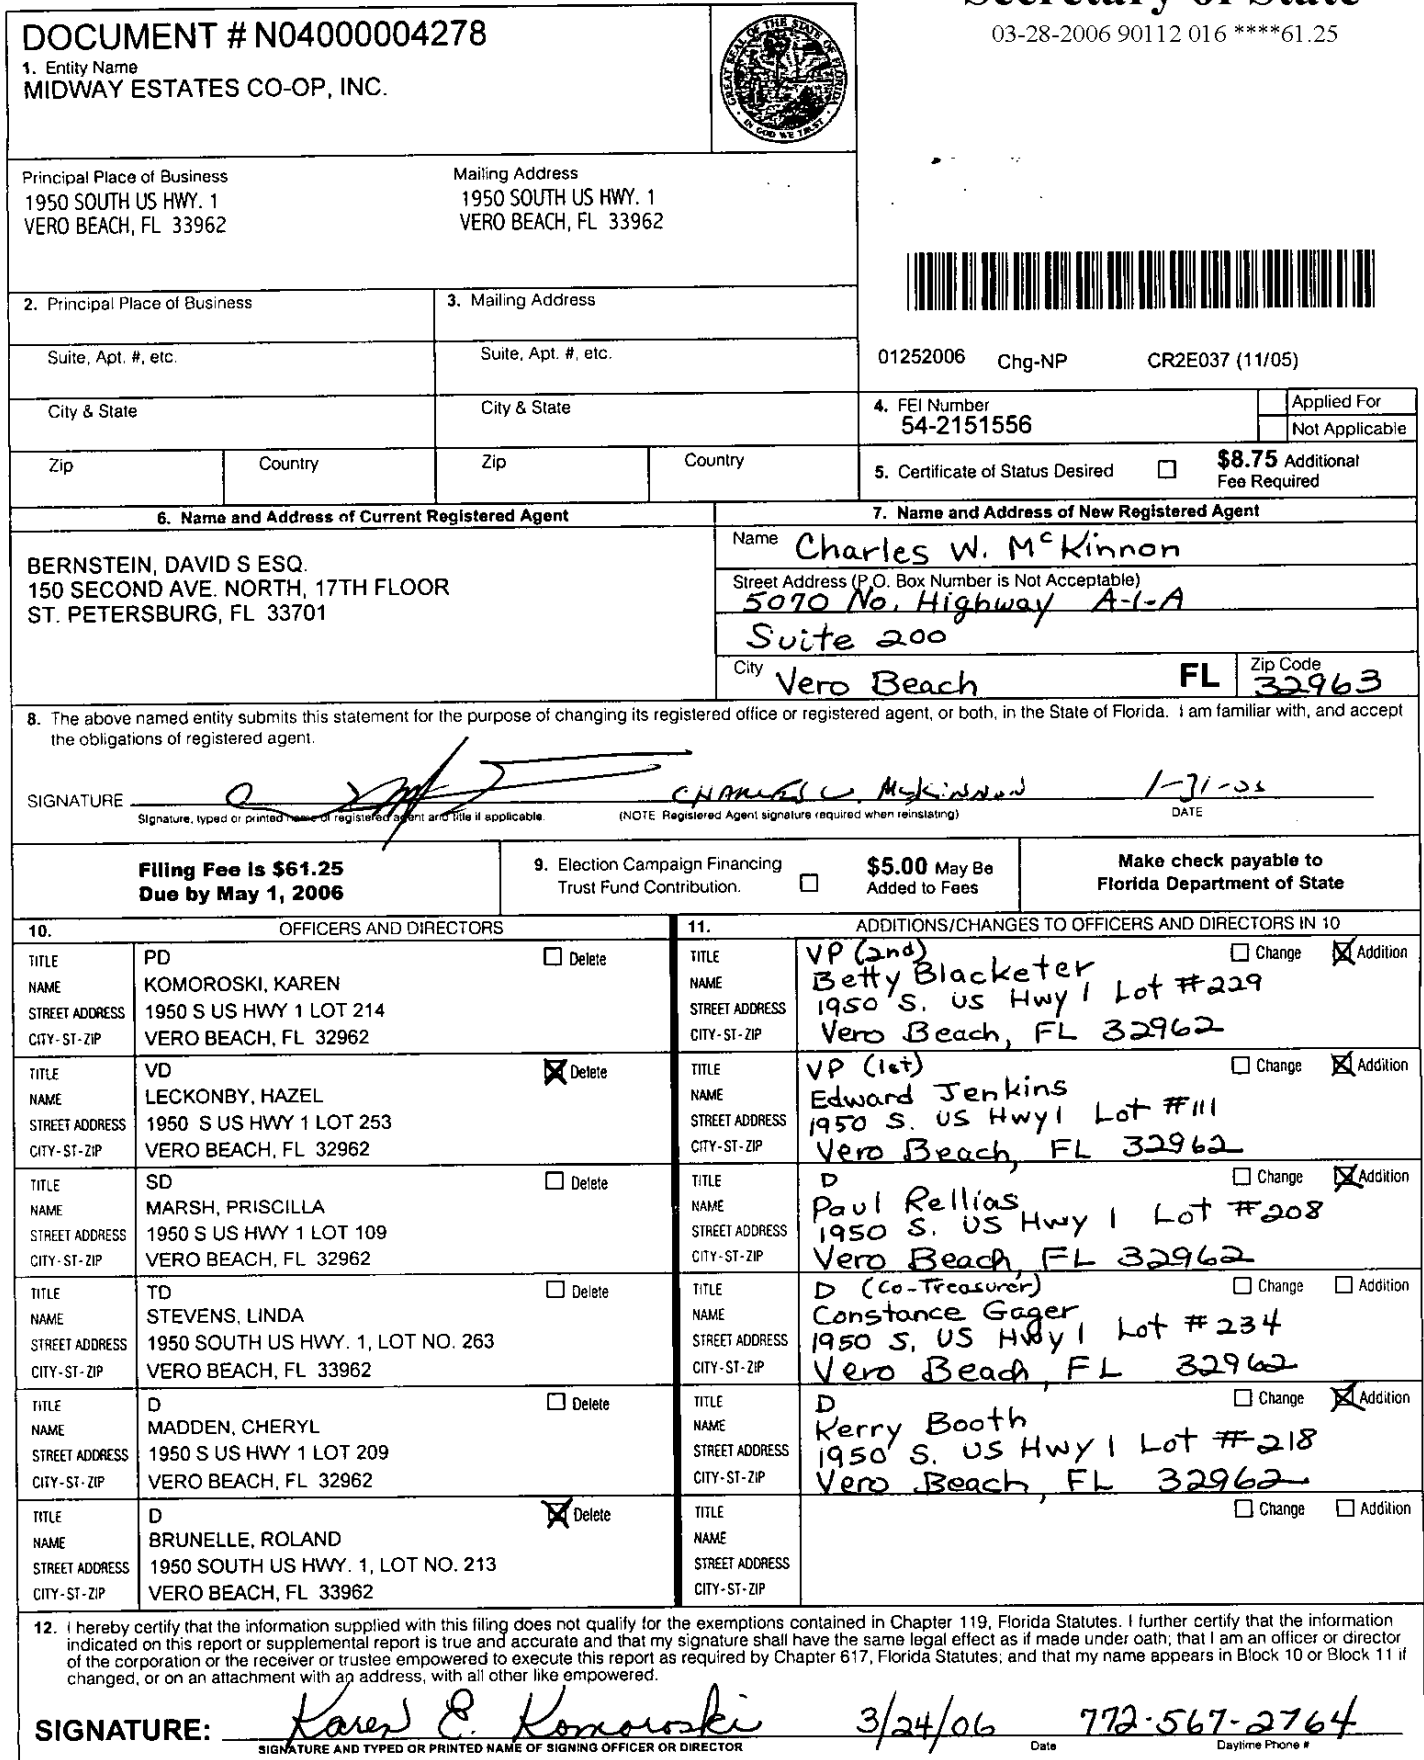 Secretary of State
03-28-2006 90112 016 ****61.25
DOCUMENT # N04000004278
1. Entity Name
MIDWAY ESTATES CO-OP, INC.
GREAT SEAL OF THE STATE OF FLORIDA
IN GOD WE TRUST
Principal Place of Business
1950 SOUTH US HWY. 1
VERO BEACH, FL 33962
Mailing Address
1950 SOUTH US HWY. 1
VERO BEACH, FL 33962
2. Principal Place of Business
3. Mailing Address
Suite, Apt. #, etc.
Suite, Apt. #, etc.
01252006 Chg-NP CR2E037 (11/05)
City & State
City & State
4. FEI Number
54-2151556
Applied For
Not Applicable
Zip
Country
Zip
Country
5. Certificate of Status Desired
$8.75 Additional
Fee Required
6. Name and Address of Current Registered Agent
BERNSTEIN, DAVID S ESQ.
150 SECOND AVE. NORTH, 17TH FLOOR
ST. PETERSBURG, FL 33701
7. Name and Address of New Registered Agent
Name Charles W. McKinnon
Street Address (P.O. Box Number is Not Acceptable)
5070 No. Highway A-1-A
Suite 200
City Vero Beach FL Zip Code 32963
8. The above named entity submits this statement for the purpose of changing its registered office or registered agent, or both, in the State of Florida. I am familiar with, and accept
the obligations of registered agent.
SIGNATURE CHARLES W. McKINNON
Signature, typed or printed name of registered agent and title if applicable. (NOTE Registered Agent signature required when reinstating) DATE
Filing Fee is $61.25
Due by May 1, 2006
9. Election Campaign Financing
Trust Fund Contribution.
$5.00 May Be
Added to Fees
Make check payable to
Florida Department of State
10. OFFICERS AND DIRECTORS
11. ADDITIONS/CHANGES TO OFFICERS AND DIRECTORS IN 10
TITLE PD Delete
NAME KOMOROSKI, KAREN
STREET ADDRESS 1950 S US HWY 1 LOT 214
CITY-ST-ZIP VERO BEACH, FL 32962
TITLE VP (2nd) Change Addition
NAME Betty Blacketer
STREET ADDRESS 1950 S. US Hwy 1 Lot #229
CITY-ST-ZIP Vero Beach, FL 32962
TITLE VD Delete
NAME LECKONBY, HAZEL
STREET ADDRESS 1950 S US HWY 1 LOT 253
CITY-ST-ZIP VERO BEACH, FL 32962
TITLE VP (1st) Change Addition
NAME Edward Jenkins
STREET ADDRESS 1950 S. US Hwy 1 Lot #111
CITY-ST-ZIP Vero Beach, FL 32962
TITLE SD Delete
NAME MARSH, PRISCILLA
STREET ADDRESS 1950 S US HWY 1 LOT 109
CITY-ST-ZIP VERO BEACH, FL 32962
TITLE D Change Addition
NAME Paul Rellias
STREET ADDRESS 1950 S. US Hwy 1 Lot #208
CITY-ST-ZIP Vero Beach, FL 32962
TITLE TD Delete
NAME STEVENS, LINDA
STREET ADDRESS 1950 SOUTH US HWY. 1, LOT NO. 263
CITY-ST-ZIP VERO BEACH, FL 33962
TITLE D (Co-Treasurer) Change Addition
NAME Constance Gager
STREET ADDRESS 1950 S. US Hwy 1 Lot #234
CITY-ST-ZIP Vero Beach, FL 32962
TITLE D Delete
NAME MADDEN, CHERYL
STREET ADDRESS 1950 S US HWY 1 LOT 209
CITY-ST-ZIP VERO BEACH, FL 32962
TITLE D Change Addition
NAME Kerry Booth
STREET ADDRESS 1950 S. US Hwy 1 Lot #218
CITY-ST-ZIP Vero Beach, FL 32962
TITLE D Delete
NAME BRUNELLE, ROLAND
STREET ADDRESS 1950 SOUTH US HWY. 1, LOT NO. 213
CITY-ST-ZIP VERO BEACH, FL 33962
TITLE Change Addition
NAME
STREET ADDRESS
CITY-ST-ZIP
12. I hereby certify that the information supplied with this filing does not qualify for the exemptions contained in Chapter 119, Florida Statutes. I further certify that the information
indicated on this report or supplemental report is true and accurate and that my signature shall have the same legal effect as if made under oath; that I am an officer or director
of the corporation or the receiver or trustee empowered to execute this report as required by Chapter 617, Florida Statutes; and that my name appears in Block 10 or Block 11 if
changed, or on an attachment with an address, with all other like empowered.
SIGNATURE: Karen E. Komoroski 3/24/06 772-567-2764
SIGNATURE AND TYPED OR PRINTED NAME OF SIGNING OFFICER OR DIRECTOR Date Daytime Phone #